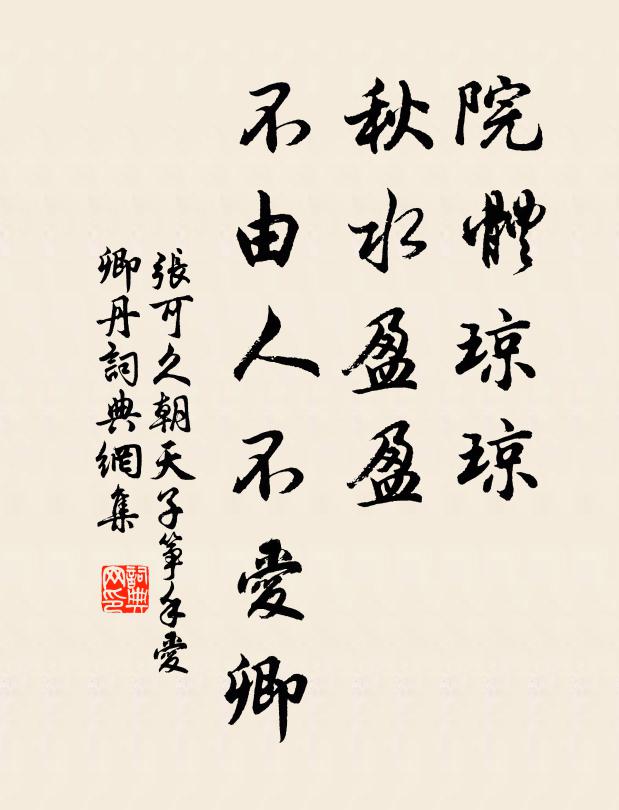 院體琼琼
秋水盈盈
不由人不愛卿
張可久朝天子筝手愛
卿丹詞典網集
詞典网印